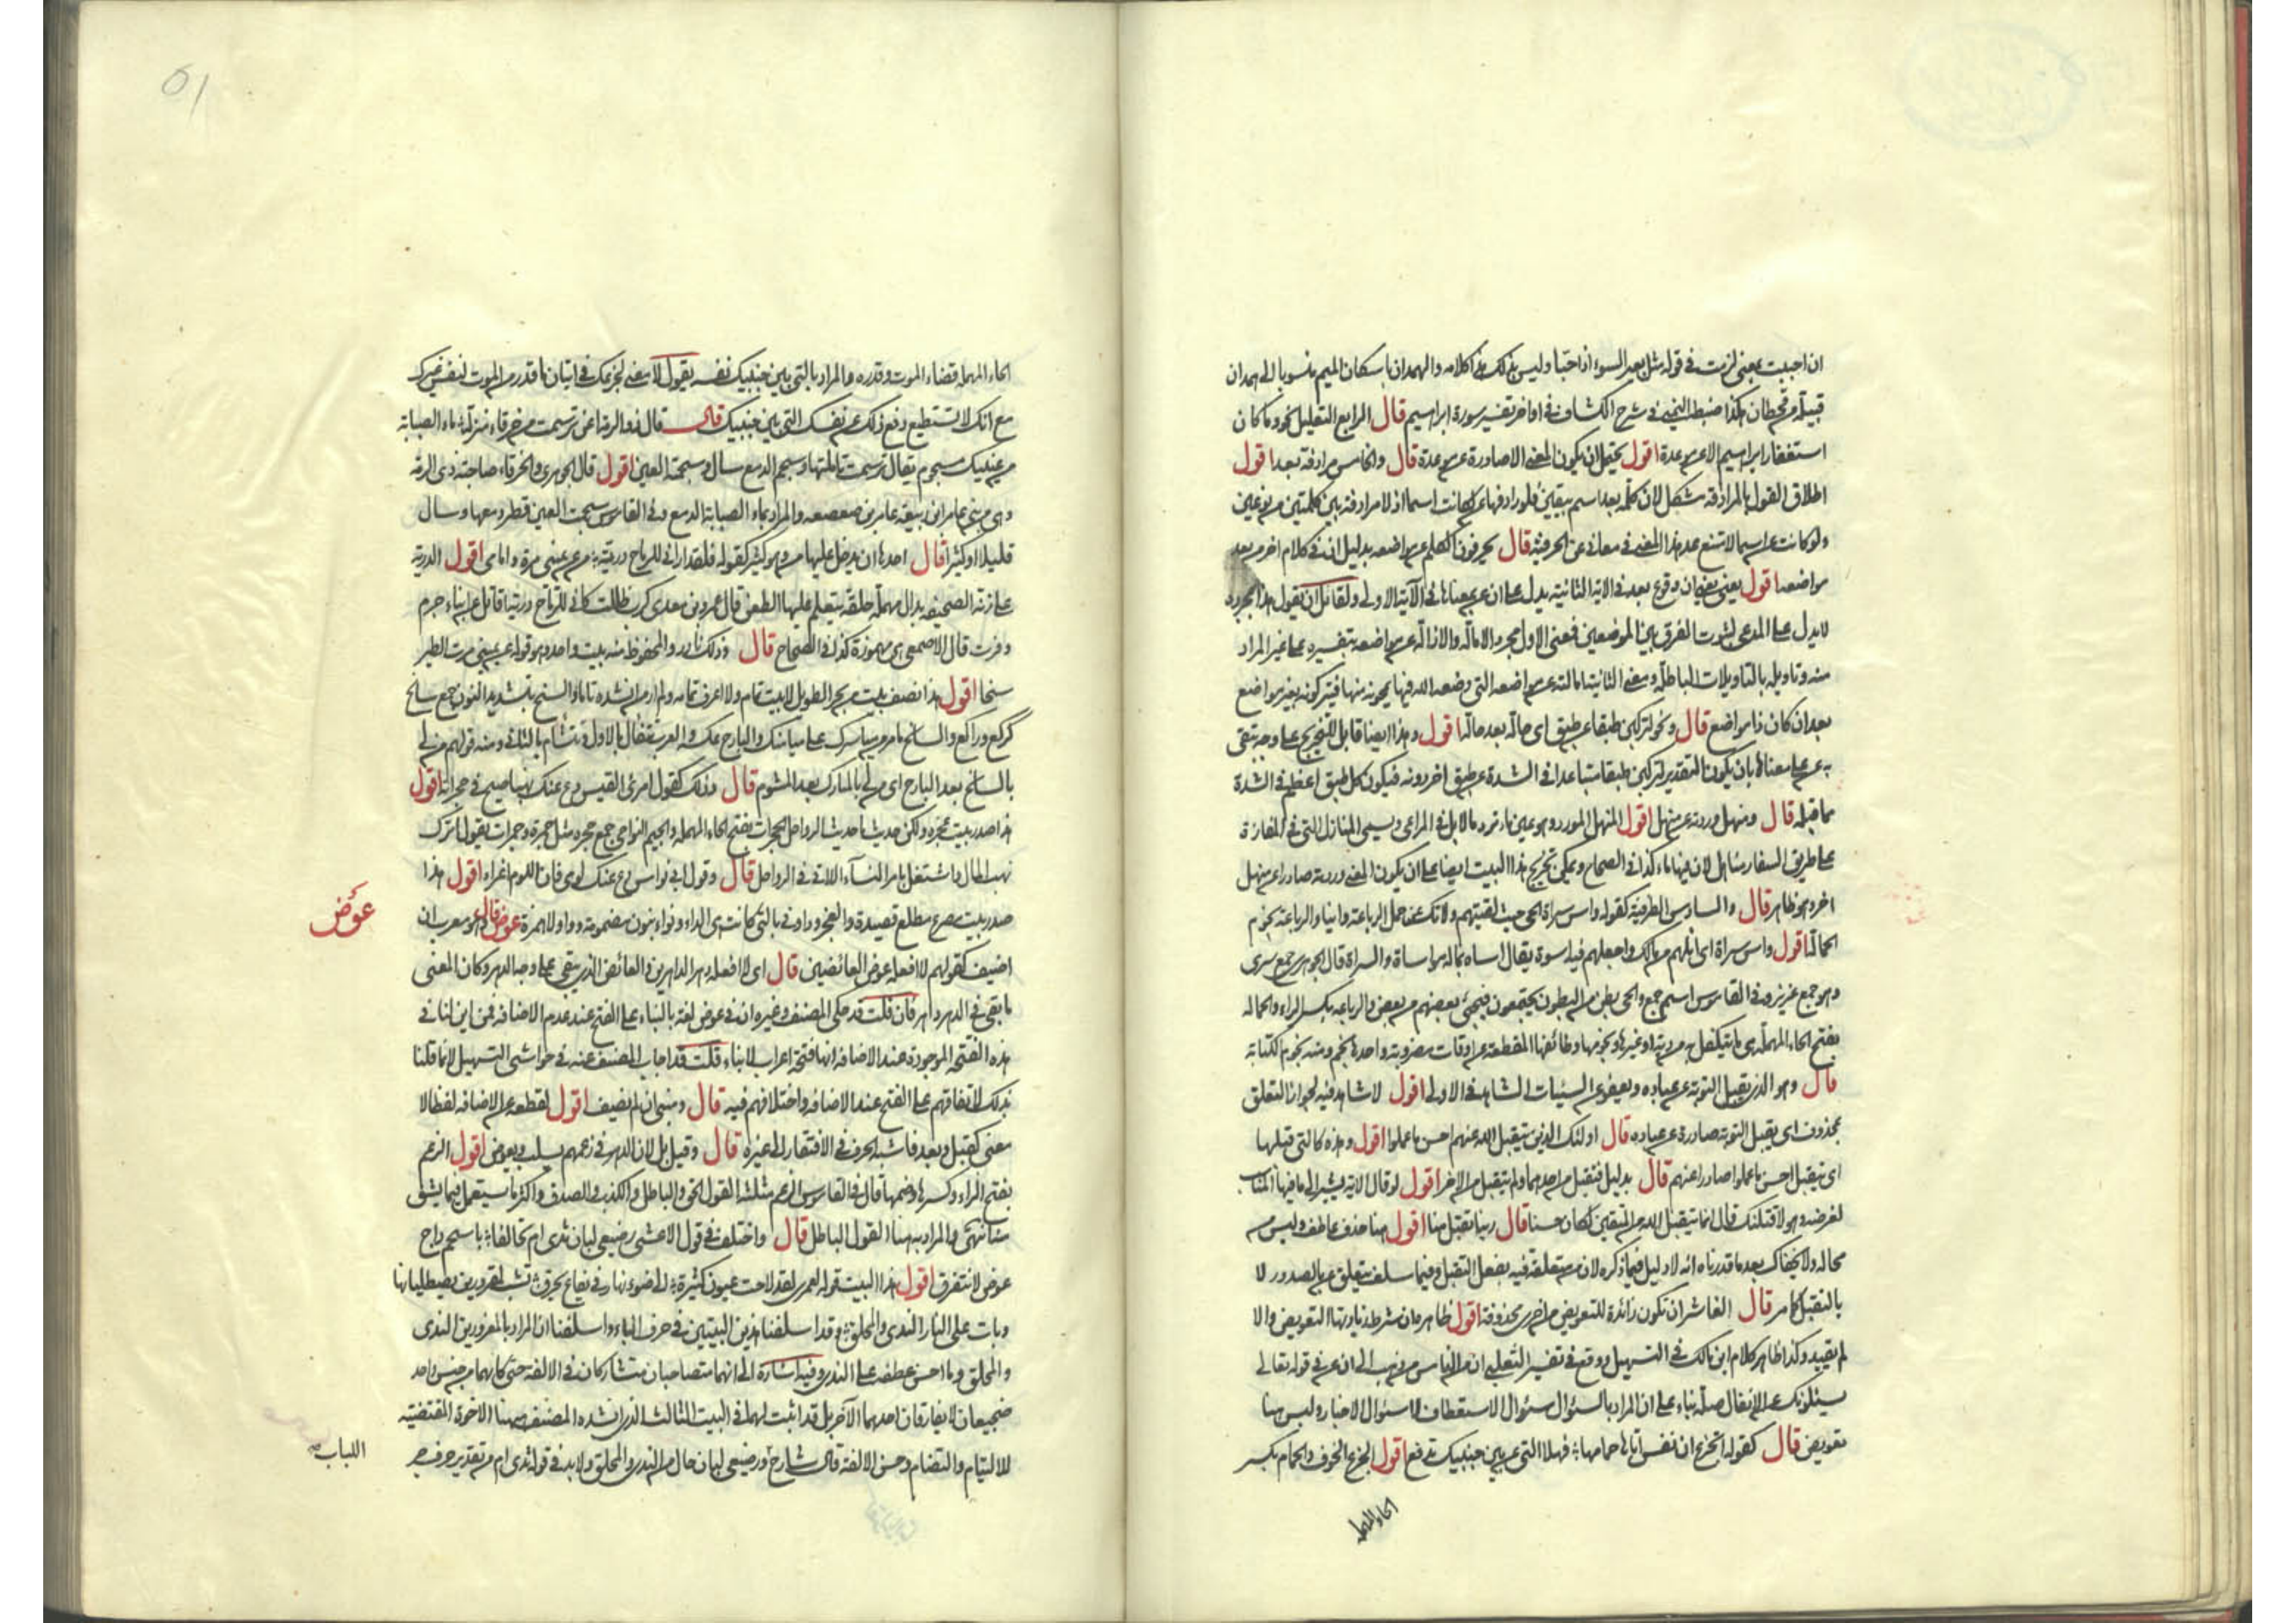 ان احببت بمعنى لزمت في قوله مثل بعير السوء اذا احبا وليس ذلك في كلامه والهمدان باسكان الميم منسوبا الى همدان
قبيلة من قحطان هكذا ضبط اليمني في شرح الكشاف في اواخر تفسير سورة ابراهيم قال الرابع التعليل نحو وما كان
استغفار ابراهيم الا عن موعدة اقول يحتمل ان يكون المعنى الا صادرة عن موعدة قال والخامس مرادفة بعد اقول
اطلاق القول بالمرادفة مشكل لان كلمة بعد اسم بيقين فلو رادفها عن لكانت اسما اذ لا مرادفة بين كلمتين من نوعين
ولو كانت عن اسما لامتنع عد هذا المعنى في معاني عن الحرفية قال يحرفون الكلم عن مواضعه بدليل ان في كلام اخر من بعد
مواضعه اقول يعني ان وقوع بعد في الاية الثانية يدل على ان عن بمعناها في الآية الاولى ولقائل ان يقول هذا المجرد
لا يدل على المدعى لثبوت الفرق بين الموضعين فمعنى الاول مجرد الامالة والازالة عن مواضعه بتفسيره على غير المراد
منه وتاويله بالتاويلات الباطلة ومعنى الثانية امالته عن مواضعه التي وضعه الله فيها يمحونه منها فيتركونه بغير مواضع
بعد ان كان ذا مواضع قال ونحو لتركبن طبقا عن طبق اى حالة بعد حالة اقول وهذا ايضا قابل للتخريج على وجه تبقى
به عن على معناها بان يكون التقدير لتركبن طبقا متباعدا في الشدة عن طبق اخر دونه فيكون كل طبق اعظم في الشدة
مما قبله قال ومنهل وردته عن منهل اقول المنهل المورد وهو عين ماء ترده الابل في المراعى وسمى المنازل التي في المفازة
على طريق السفار مناهل لان فيها ماء كذا في الصحاح ويمكن تخريج هذا البيت ايضا على ان يكون المعنى وردته صادرا عن منهل
اخر وهو ظاهر قال والسادس الظرفية كقوله واس سراة الحى حيث لقيتهم ولا تك عن حمل الرباعة وانيا والرباعة نجوم
الحمالة اقول واس سراة اى انلهم من مالك واجعلهم فيه اسوة يقال اساه بماله مواساة والسراة قال الجوهرى جمع سرى
وهو جمع عزيز وفي القاموس اسم جمع والحى بطن من البطون يجتمعون فيجئ بعضهم من بعض والرباعه بكسر الراء والحماله
بفتح الحاء المهملة هى ما يتكفل به من دية او غيرها ونجومها وظائفها المقطعة على اوقات مضروبة واحدها نجم ومنه نجوم الكتابة
قال وهو الذى يقبل التوبة عن عباده ويعفو عن السيئات الشاهد في الاولى اقول لا شاهد فيه لجواز التعلق
بمحذوف اى يقبل التوبة صادرة عن عباده قال اولئك الذين يتقبل الله عنهم احسن ما عملوا اقول وهذه كالتى قبلها
اى يتقبل احسن ما عملوا صادرا عنهم قال بدليل فتقبل من احدهما ولم يتقبل من الاخر اقول لو قال الاية ليشير الى ما فيها المناسب
لغرضه وهو لاقتلنك قال انما يتقبل الله من المتقين لكان حسنا قال ربنا تقبل منا اقول هنا حذف عاطف وليس من
محاله ولا يخفاك بعد ما قدرناه انه لا دليل فيما ذكره لان من متعلقة فيه بفعل التقبل وفيما سلف يتعلق عن بالصدور لا
بالتقبل كما مر قال العاشر ان تكون زائدة للتعويض من اخرى محذوفة اقول ظاهره ان شرط زيادتها التعويض والا
لم يقيد وكذا ظاهر كلام ابن مالك في التسهيل ووقع في تفسير الثعلبى ان من الناس من ذهب الى ان عن في قوله تعالى
يسئلونك عن الانفال صلة بناء على ان المراد بالسؤال سؤال الاستعطاف لا سؤال الاخبار وليس هنا
تعويض قال كقوله اتجزع ان نفس اتاها حمامها فهلا التى عن بين جنبيك تدفع اقول الجزع الخوف والحمام بكسر
الحاء المهملة
الحاء المهملة قضاء الموت وقدره والمراد بالتى بين جنبيك نفسه يقول لا معنى لجزعك في اتيان ما قدر من الموت لنفس غيرك
مع انك لا تستطيع دفع ذلك عن نفسك التى بين جنبيك قال قال ذو الرمة اعن ترسمت من خرقاء منزلة ماء الصبابة
من عينيك مسجوم يقال ترسمت تاملتها وسجم الدمع سال وسجمته العين اقول قال الجوهرى والخرقاء صاحبة ذى الرمة
وهى من بنى عامر ابن ربيعة عامر بن صعصعه والمراد بماء الصبابة الدمع وفي القاموس سجمت العين قطر دمعها وسال
قليلا او كثيرا قال احدها ان يدخل عليها من وهو كثير كقوله فلقد ارانى للرماح دريئة من عن يمينى مرة وامامى اقول الدرية
على زنة الصحيفه بدال مهملة حلقة يتعلم عليها الطعن قال عمرو بن معدى كرب ظللت كانى للرماح درية اقاتل عن ابناء جرم
وفرت قال الاصمعى هى مهموزة كذا في الصحاح قال وذلك نادر والمحفوظ منه بيت واحد وهو قوله على عن يمينى مرت الطير
سنحا اقول هذا نصف بيت من بحر الطويل لا بيت تام ولا اعرف تمامه ولم ار من انشده تاما والسنح بتشديد النون جمع سانح
كركع وراكع والسانح ما مر من مياسرك على ميامنك والبارح عكسه والعرب تتفأل بالاول وتتشأم بالثانى ومنه قولهم من لى
بالسانح بعد البارح اى من لى بالمبارك بعد المشوم قال وذلك كقول امرئ القيس دع عنك نهبا صيح في حجراته اقول
هذا صدر بيت عجزه ولكن حديثا ما حديث الرواحل الحجرات بفتح الحاء المهملة والجيم النواحى جمع حجرة مثل جمرة وجمرات يقول اترك
نهب اطال واشتغل بامر النساء اللاتى في الرواحل قال وقول ابى نواس دع عنك لومى فان اللوم اغراء اقول هذا
صدر بيت مصرع مطلع قصيدة والعجز وداونى بالتى كانت هى الداء ونواس بنون مضمومة وواو لا همزة عوض قال وهو معرب ان
عوض
اضيف كقولهم لا افعله عوض العائضين قال اى لا افعله دهر الداهرين والعائض الذى يبقى على وجه الدهر وكان المعنى
ما بقى في الدهر داهر فان قلت قد حكى المصنف وغيره ان في عوض لغة بالبناء على الفتح عند عدم الاضافه فمن اين لنا في
هذه الفتحة الموجودة عند الاضافه انها فتحة اعراب لا بناء قلت قد اجاب المصنف عنه في حواشى التسهيل لانما قلنا
بذلك لاتفاقهم على الفتح عند الاضافه واختلافهم فيه قال ومبنى ان لم يضف اقول لقطعه عن الاضافه لفظا لا
معنى كقبل وبعد فاشبه الحرف في الافتقار الى غيره قال وقيل بل لان الدهر في زعمهم يسلب ويعوض اقول الزعم
بفتح الزاء وكسرها وضمها قال في القاموس الزعم مثلثه القول الحق والباطل والكذب والصدق واكثر ما يستعمل فيما يشق
شا نتهى والمراد به هنا القول الباطل قال واختلف في قول الاعشى رضيعى لبان ثدى ام تحالفا باسحم داج
عوض لا نتفرق اقول هذا البيت قوله لعمرى لقد لاحت عيون كثيرة الى ضوء نار في يفاع تحرق تشب لمقرورين يصطليانها
وبات على النار الندى والمحلق وقد اسلفنا هذين البيتين في حرف الباء واسلفنا ان المراد بالمقرورين الندى
والمحلق وما احسن عطفه على الندى وفيه اشارة الى انهما متصاحبان متشاركان في الالفة حتى كانهما من جنس واحد
ضجيعان لا يفارقان احدهما الآخر بل قد اثبت لهما في البيت الثالث الذى انشده المصنف ههنا الاخوة المقتضية
للالتيام والتضام وحسن الالفة قال شارح ورضيعى لبان حال من الندى والمحلق ولا بد في قوله ثدى ام من تقدير حرف جر
اللباب